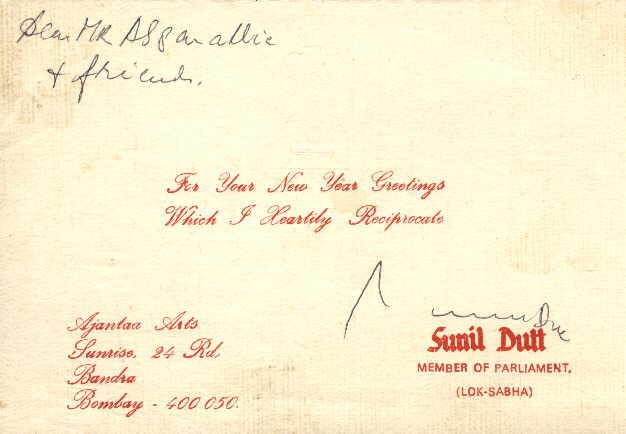 Dear MR Asgarallie
& friends.
For Your New Year Greetings
Which I Heartily Reciprocate
Ajantaa Arts
Sunrise, 24 Rd,
Bandra
Bombay - 400 050.
Sunil Dutt
MEMBER OF PARLIAMENT.
(LOK-SABHA)